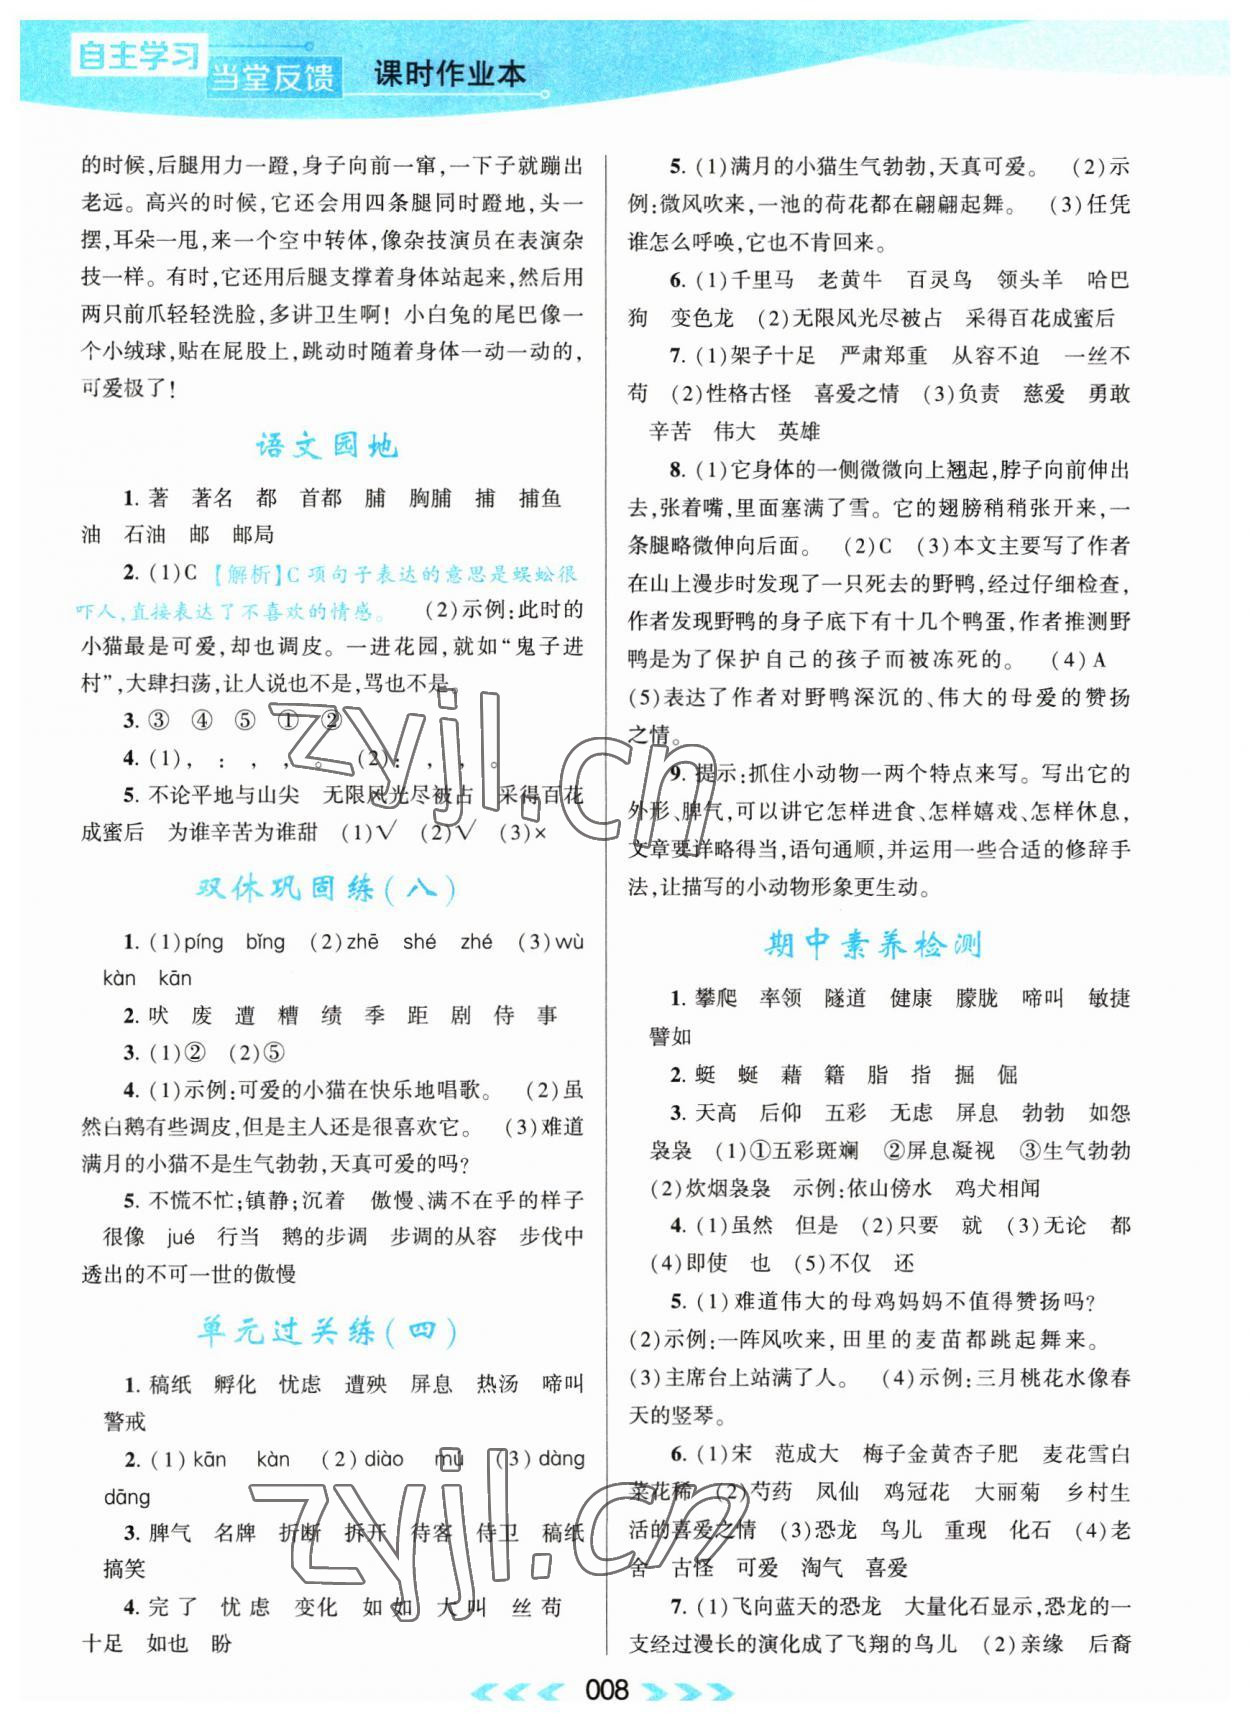 自主学习
当堂反馈 课时作业本
的时候,后腿用力一蹬,身子向前一窜,一下子就蹦出
老远。高兴的时候,它还会用四条腿同时蹬地,头一
摆,耳朵一甩,来一个空中转体,像杂技演员在表演杂
技一样。有时,它还用后腿支撑着身体站起来,然后用
两只前爪轻轻洗脸,多讲卫生啊!小白兔的尾巴像一
个小绒球,贴在屁股上,跳动时随着身体一动一动的,
可爱极了!
语文园地
1. 著 著名 都 首都 脯 胸脯 捕 捕鱼
油 石油 邮 邮局
2. (1)C 【解析】C 项句子表达的意思是蜈蚣很
吓人,直接表达了不喜欢的情感。 (2)示例:此时的
小猫最是可爱,却也调皮。一进花园,就如“鬼子进
村”,大肆扫荡,让人说也不是,骂也不是。
3. ③ ④ ⑤ ① ②
4. (1), : , , 。 (2): , , 。
5. 不论平地与山尖 无限风光尽被占 采得百花
成蜜后 为谁辛苦为谁甜 (1)√ (2)√ (3)×
双休巩固练(八)
1. (1)píng bǐng (2)zhē shé zhé (3)wù
kàn kān
2. 吠 废 遭 糟 绩 季 距 剧 侍 事
3. (1)② (2)⑤
4. (1)示例:可爱的小猫在快乐地唱歌。 (2)虽
然白鹅有些调皮,但是主人还是很喜欢它。 (3)难道
满月的小猫不是生气勃勃,天真可爱的吗?
5. 不慌不忙;镇静;沉着 傲慢、满不在乎的样子
很像 jué 行当 鹅的步调 步调的从容 步伐中
透出的不可一世的傲慢
单元过关练(四)
1. 稿纸 孵化 忧虑 遭殃 屏息 热汤 啼叫
警戒
2. (1)kān kàn (2)diào mú (3)dàng
dāng
3. 脾气 名牌 折断 拆开 待客 侍卫 稿纸
搞笑
4. 完 了 忧 虑 变化 如 如 大 叫 丝 苟
十足 如也 盼
5. (1)满月的小猫生气勃勃,天真可爱。 (2)示
例:微风吹来,一池的荷花都在翩翩起舞。 (3)任凭
谁怎么呼唤,它也不肯回来。
6. (1)千里马 老黄牛 百灵鸟 领头羊 哈巴
狗 变色龙 (2)无限风光尽被占 采得百花成蜜后
7. (1)架子十足 严肃郑重 从容不迫 一丝不
苟 (2)性格古怪 喜爱之情 (3)负责 慈爱 勇敢
辛苦 伟大 英雄
8. (1)它身体的一侧微微向上翘起,脖子向前伸出
去,张着嘴,里面塞满了雪。它的翅膀稍稍张开来,一
条腿略微伸向后面。 (2)C (3)本文主要写了作者
在山上漫步时发现了一只死去的野鸭,经过仔细检查,
作者发现野鸭的身子底下有十几个鸭蛋,作者推测野
鸭是为了保护自己的孩子而被冻死的。 (4)A
(5)表达了作者对野鸭深沉的、伟大的母爱的赞扬
之情。
9. 提示:抓住小动物一两个特点来写。写出它的
外形、脾气,可以讲它怎样进食、怎样嬉戏、怎样休息,
文章要详略得当,语句通顺,并运用一些合适的修辞手
法,让描写的小动物形象更生动。
期中素养检测
1. 攀爬 率领 隧道 健康 朦胧 啼叫 敏捷
譬如
2. 蜓 蜒 藉 籍 脂 指 掘 倔
3. 天高 后仰 五彩 无虑 屏息 勃勃 如怨
袅袅 (1)①五彩斑斓 ②屏息凝视 ③生气勃勃
(2)炊烟袅袅 示例:依山傍水 鸡犬相闻
4. (1)虽然 但是 (2)只要 就 (3)无论 都
(4)即使 也 (5)不仅 还
5. (1)难道伟大的母鸡妈妈不值得赞扬吗?
(2)示例:一阵风吹来,田里的麦苗都跳起舞来。
(3)主席台上站满了人。 (4)示例:三月桃花水像春
天的竖琴。
6. (1)宋 范成大 梅子金黄杏子肥 麦花雪白
菜花稀 (2)芍药 凤仙 鸡冠花 大丽菊 乡村生
活的喜爱之情 (3)恐龙 鸟儿 重现 化石 (4)老
舍 古怪 可爱 淘气 喜爱
7. (1)飞向蓝天的恐龙 大量化石显示,恐龙的一
支经过漫长的演化成了飞翔的鸟儿 (2)亲缘 后裔
008
zyjl.cn
zyjl.cn